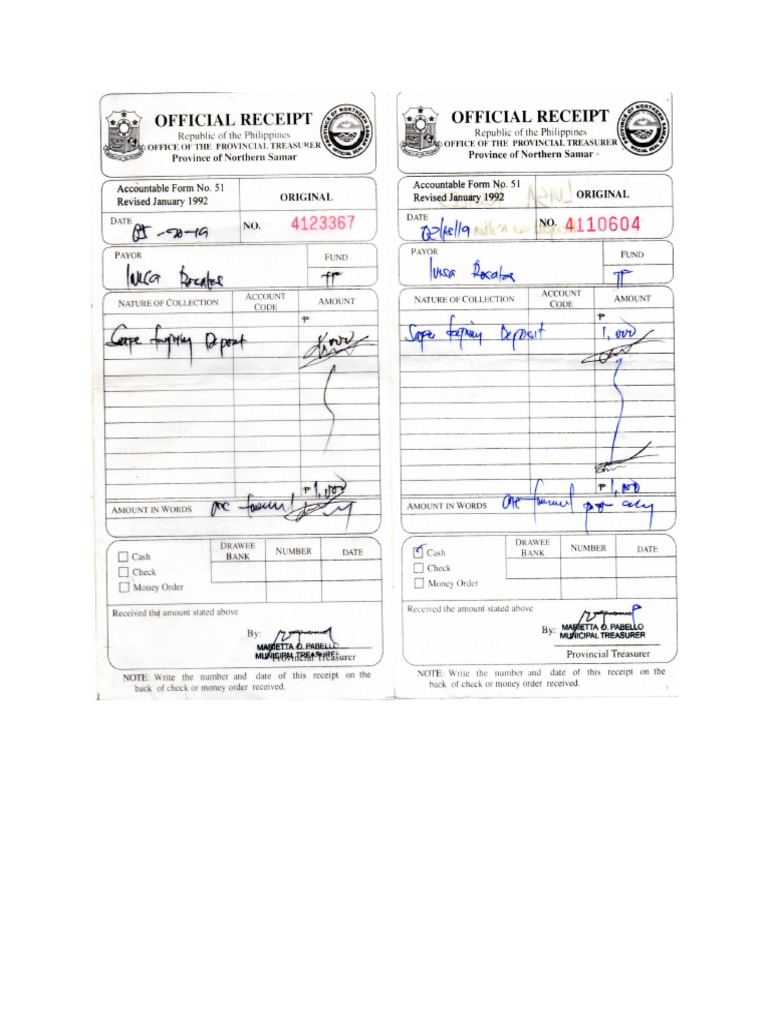 OFFICIAL RECEIPT
Republic of the Philippines
OFFICE OF THE PROVINCIAL TREASURER
Province of Northern Samar
Accountable Form No. 51
Revised January 1992
ORIGINAL
DATE
NO. 4123367
PAYOR
FUND
TF
NATURE OF COLLECTION
ACCOUNT CODE
AMOUNT
₱
Deposit 1,000
₱ 1,000
AMOUNT IN WORDS one
Cash
Check
Money Order
DRAWEE BANK
NUMBER
DATE
Received the amount stated above
By:
MARIETTA O. PABELLO
MUNICIPAL TREASURER
Provincial Treasurer
NOTE: Write the number and date of this receipt on the
back of check or money order received.
OFFICIAL RECEIPT
Republic of the Philippines
OFFICE OF THE PROVINCIAL TREASURER
Province of Northern Samar
Accountable Form No. 51
Revised January 1992
ORIGINAL
DATE
NO. 4110604
PAYOR
FUND
TF
NATURE OF COLLECTION
ACCOUNT CODE
AMOUNT
₱
Deposit 1,000
₱ 1,000
AMOUNT IN WORDS one
Cash
Check
Money Order
DRAWEE BANK
NUMBER
DATE
Received the amount stated above
By:
MARIETTA O. PABELLO
MUNICIPAL TREASURER
Provincial Treasurer
NOTE: Write the number and date of this receipt on the
back of check or money order received.